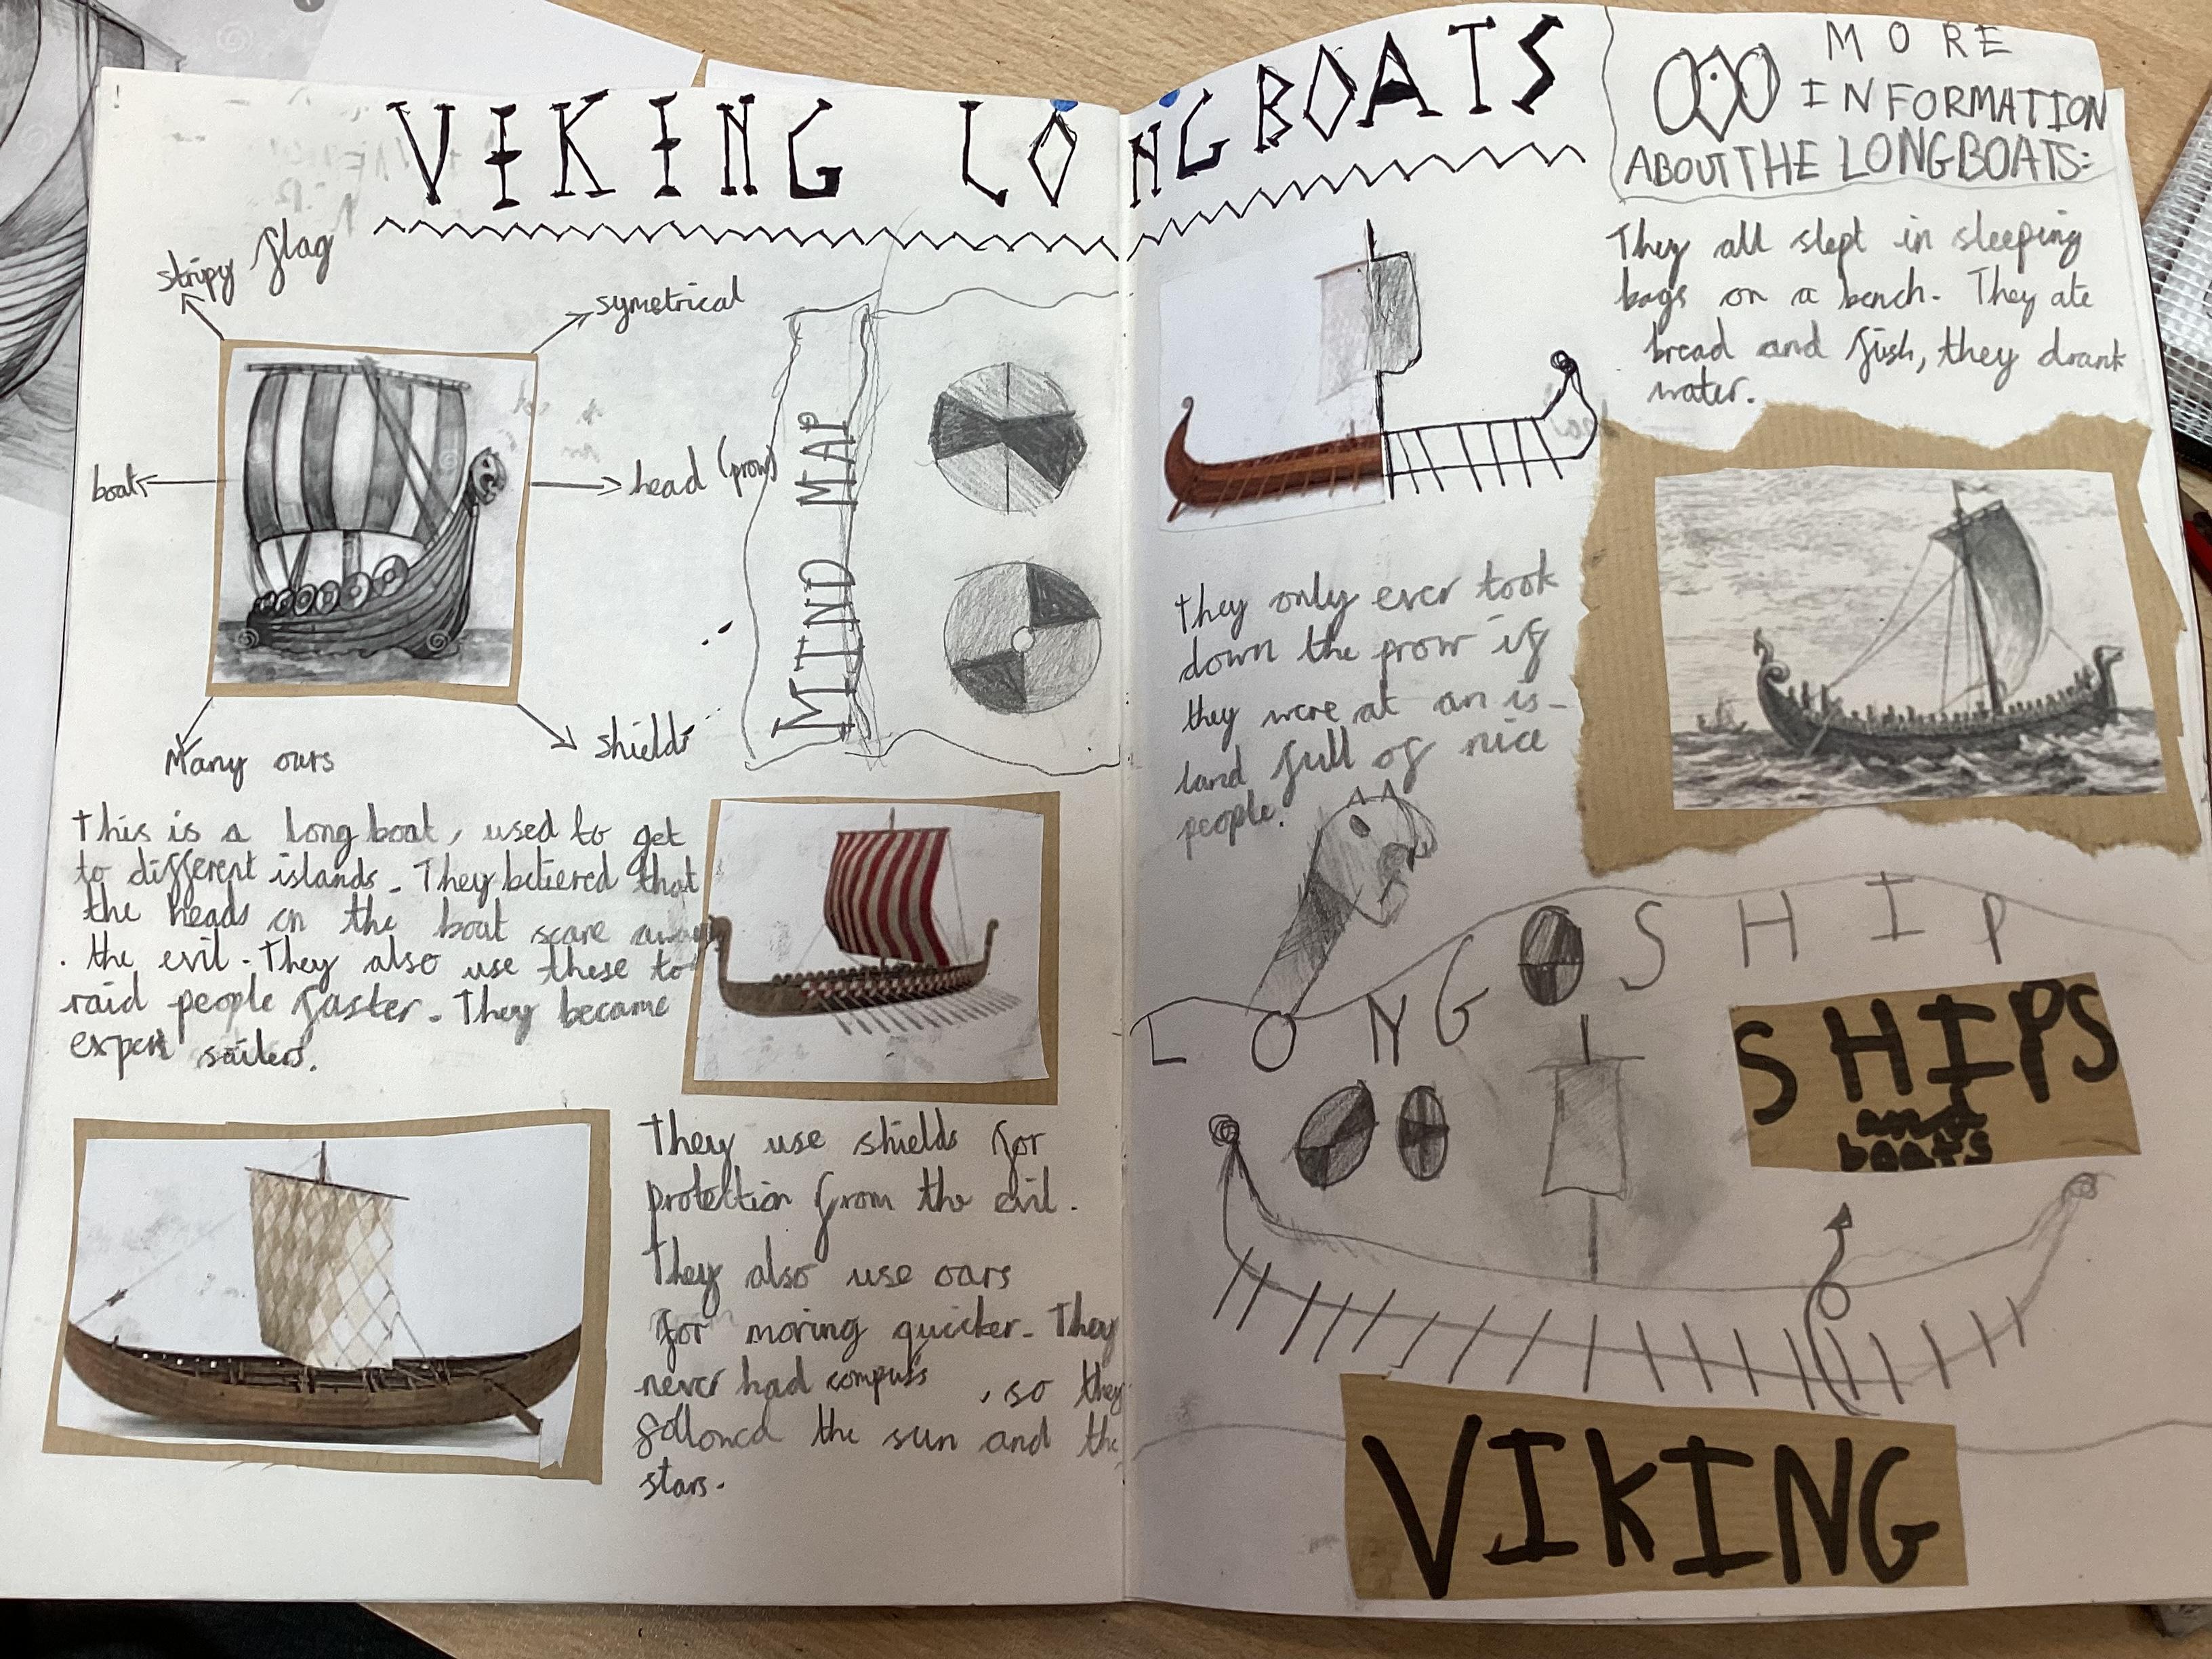 VIKING LONGBOATS
stripy flag
symetrical
boat
head (prow)
Many ours
shields
MIND MAP
This is a long boat, used to get
to different islands. They beliered that
the heads on the boat scare away
the evil. They also use these to
raid people faster. They became
expert sailers.
They use shields for
protection from the evil.
They also use oars
for moving quicker. They
never had compass, so they
followed the sun and the
stars.
MORE
INFORMATION
ABOUT THE LONGBOATS:
They all slept in sleeping
bags on a bench. They ate
bread and fish, they drank
water.
They only ever took
down the prow if
they were at an is-
land full of nice
people.
LONG SHIP
SHIPS
and
boats
VIKING